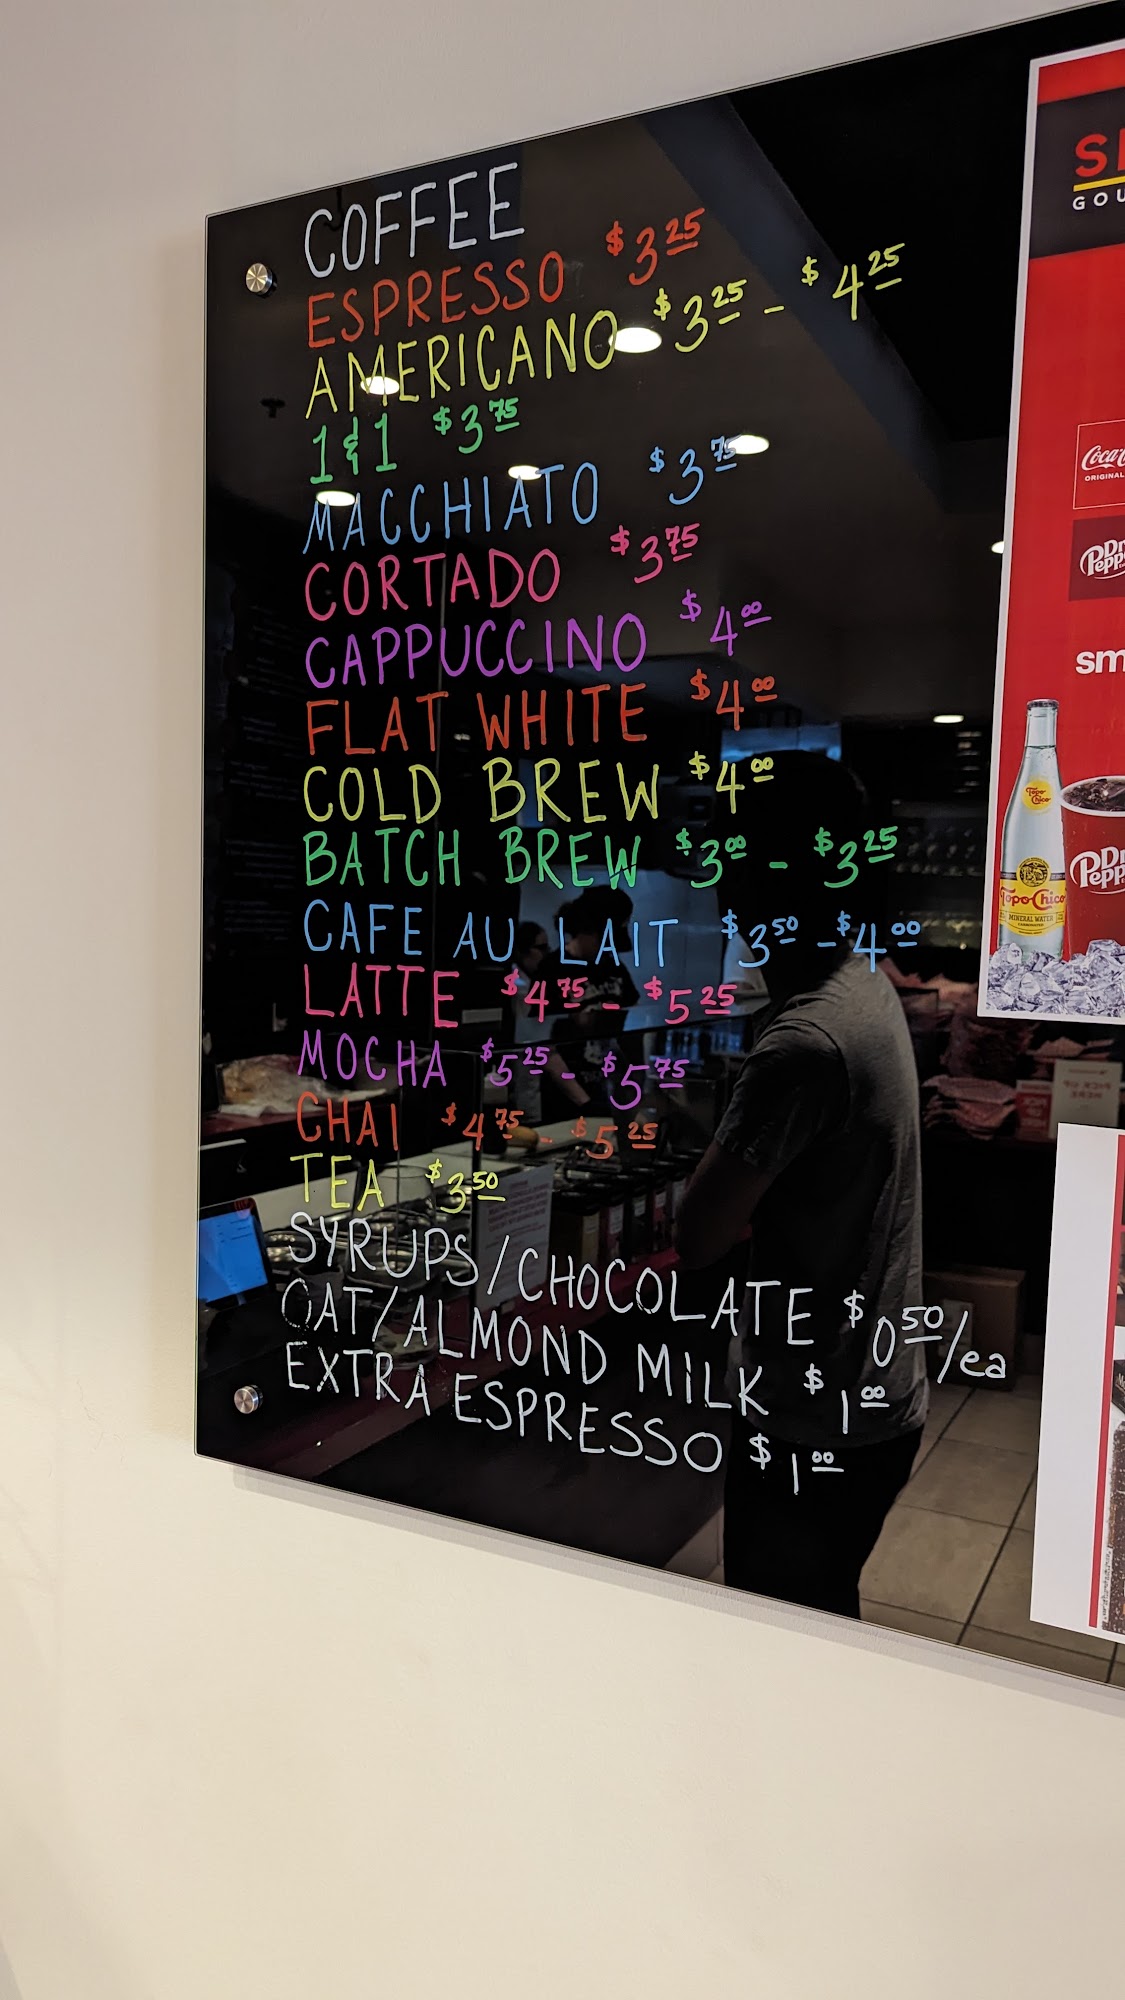 COFFEE
ESPRESSO $3.25
AMERICANO $3.25 - $4.25
1&1 $3.75
MACCHIATO $3.75
CORTADO $3.75
CAPPUCCINO $4.00
FLAT WHITE $4.00
COLD BREW $4.00
BATCH BREW $3.00 - $3.25
CAFE AU LAIT $3.50 - $4.00
LATTE $4.75 - $5.25
MOCHA $5.25 - $5.75
CHAI $4.75 - $5.25
TEA $3.50
SYRUPS/CHOCOLATE $0.50/ea
OAT/ALMOND MILK $1.00
EXTRA ESPRESSO $1.00
GOU
Coca-C
ORIGINAL
Dr
Peppe
sm
Topo Chico
Topo-Chico
MINERAL WATER
Dr
Peppe